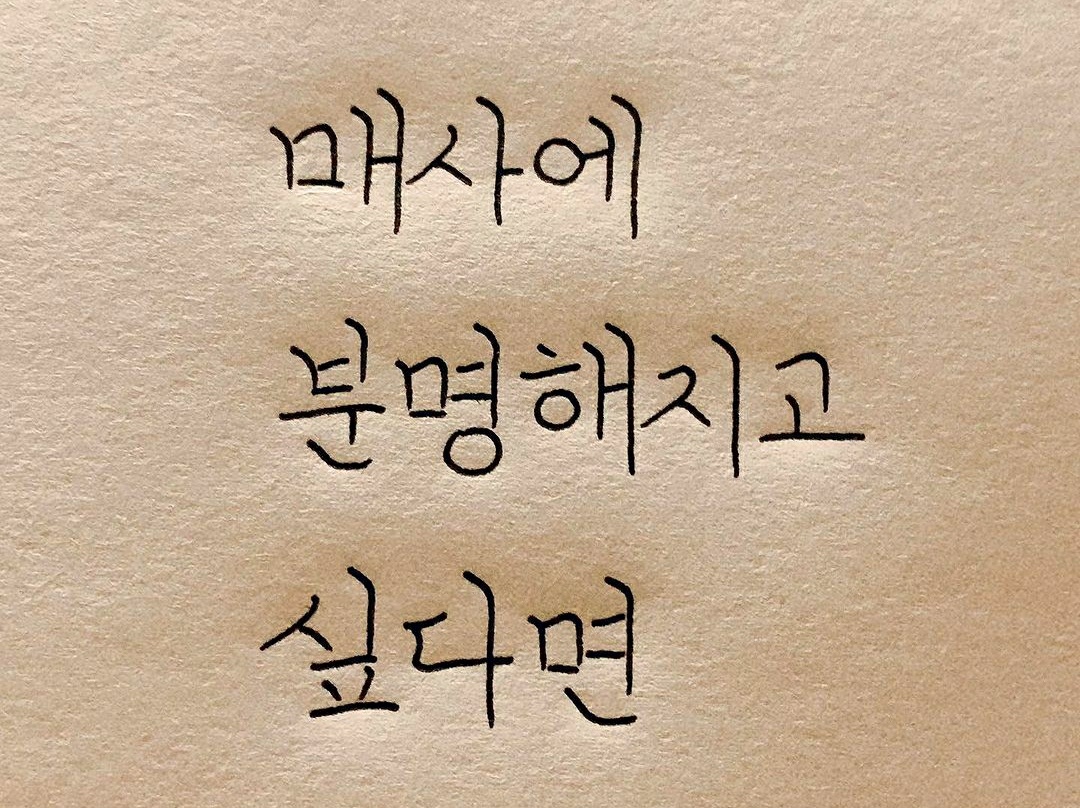 매사에
분명해지고
싶다면